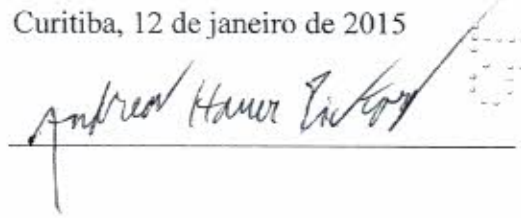 Curitiba, 12 de janeiro de 2015
Andrea Hauer